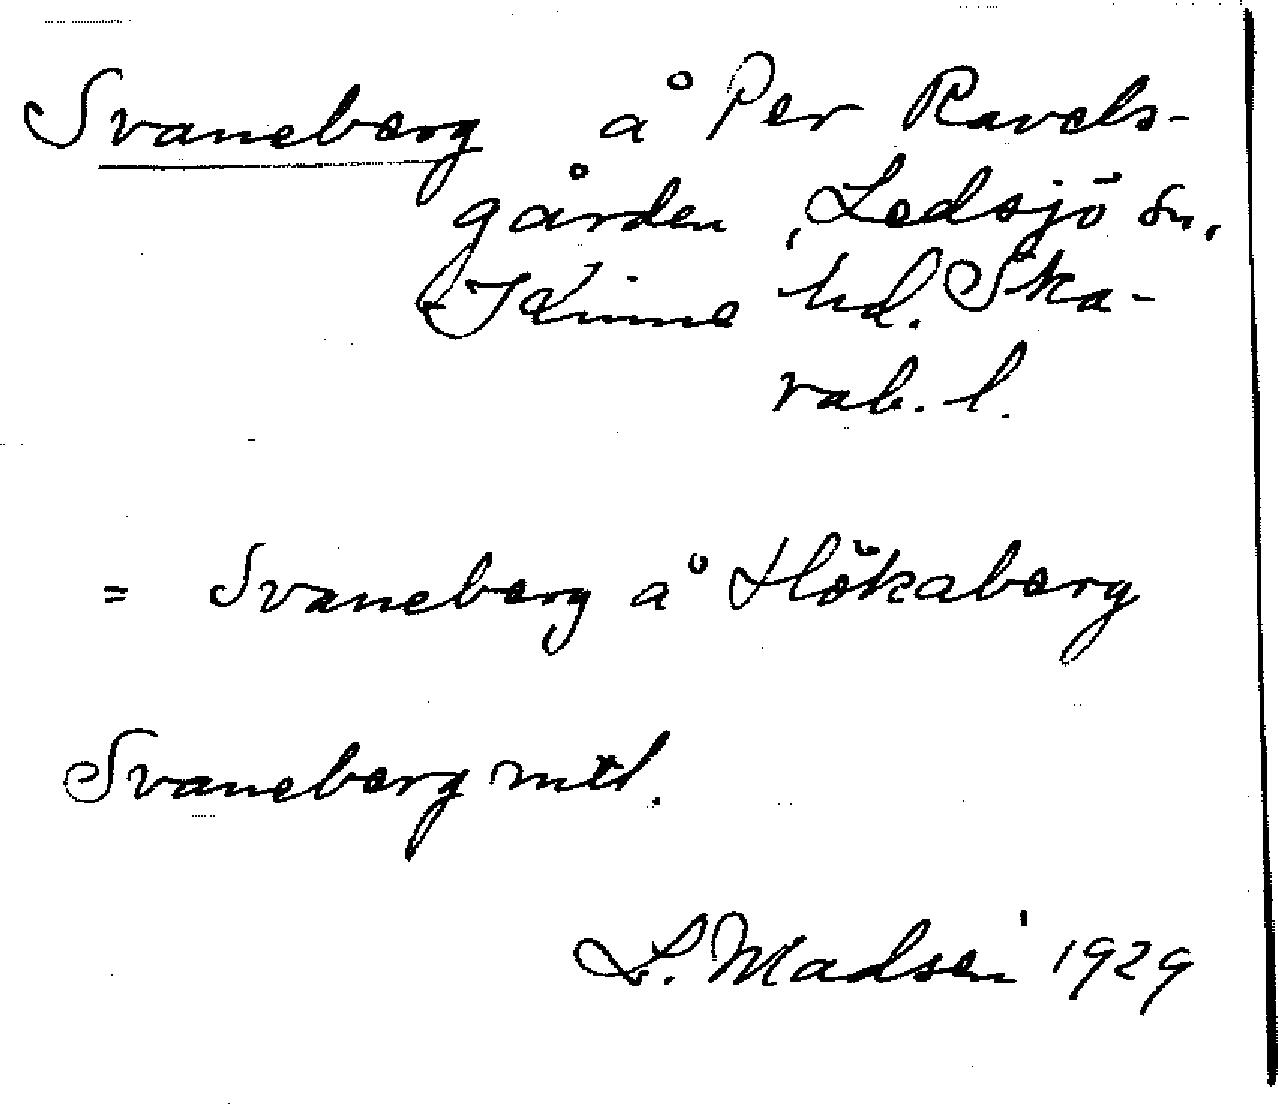 Svaneberg å Per Ravels-
gården, Ledsjö sn,
Kinne hd. Ska-
rab. l.
= Svaneberg å Hökaberg
Svaneberg mtl.
L. Madsen 1929